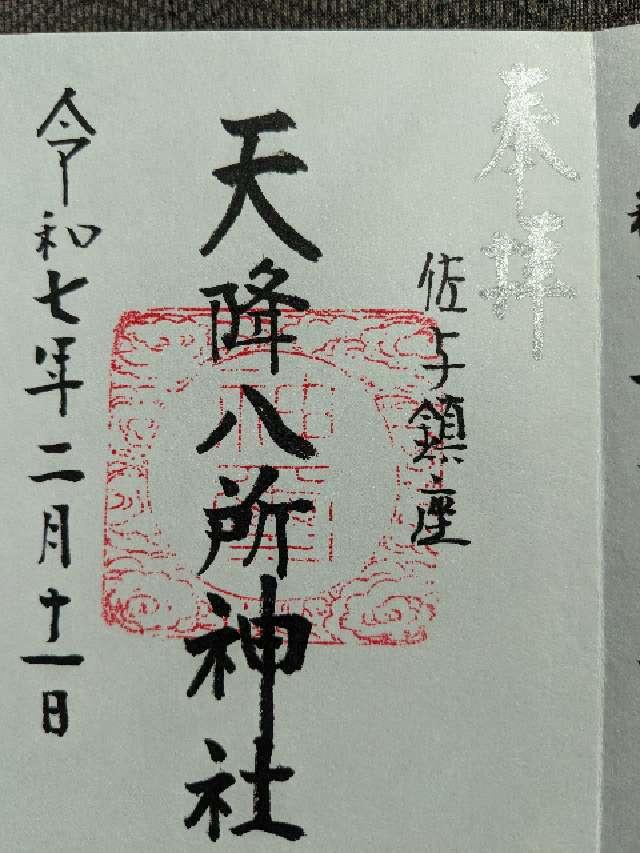 奉拝
佐与鎮座
天降八所神社
令和七年二月十一日